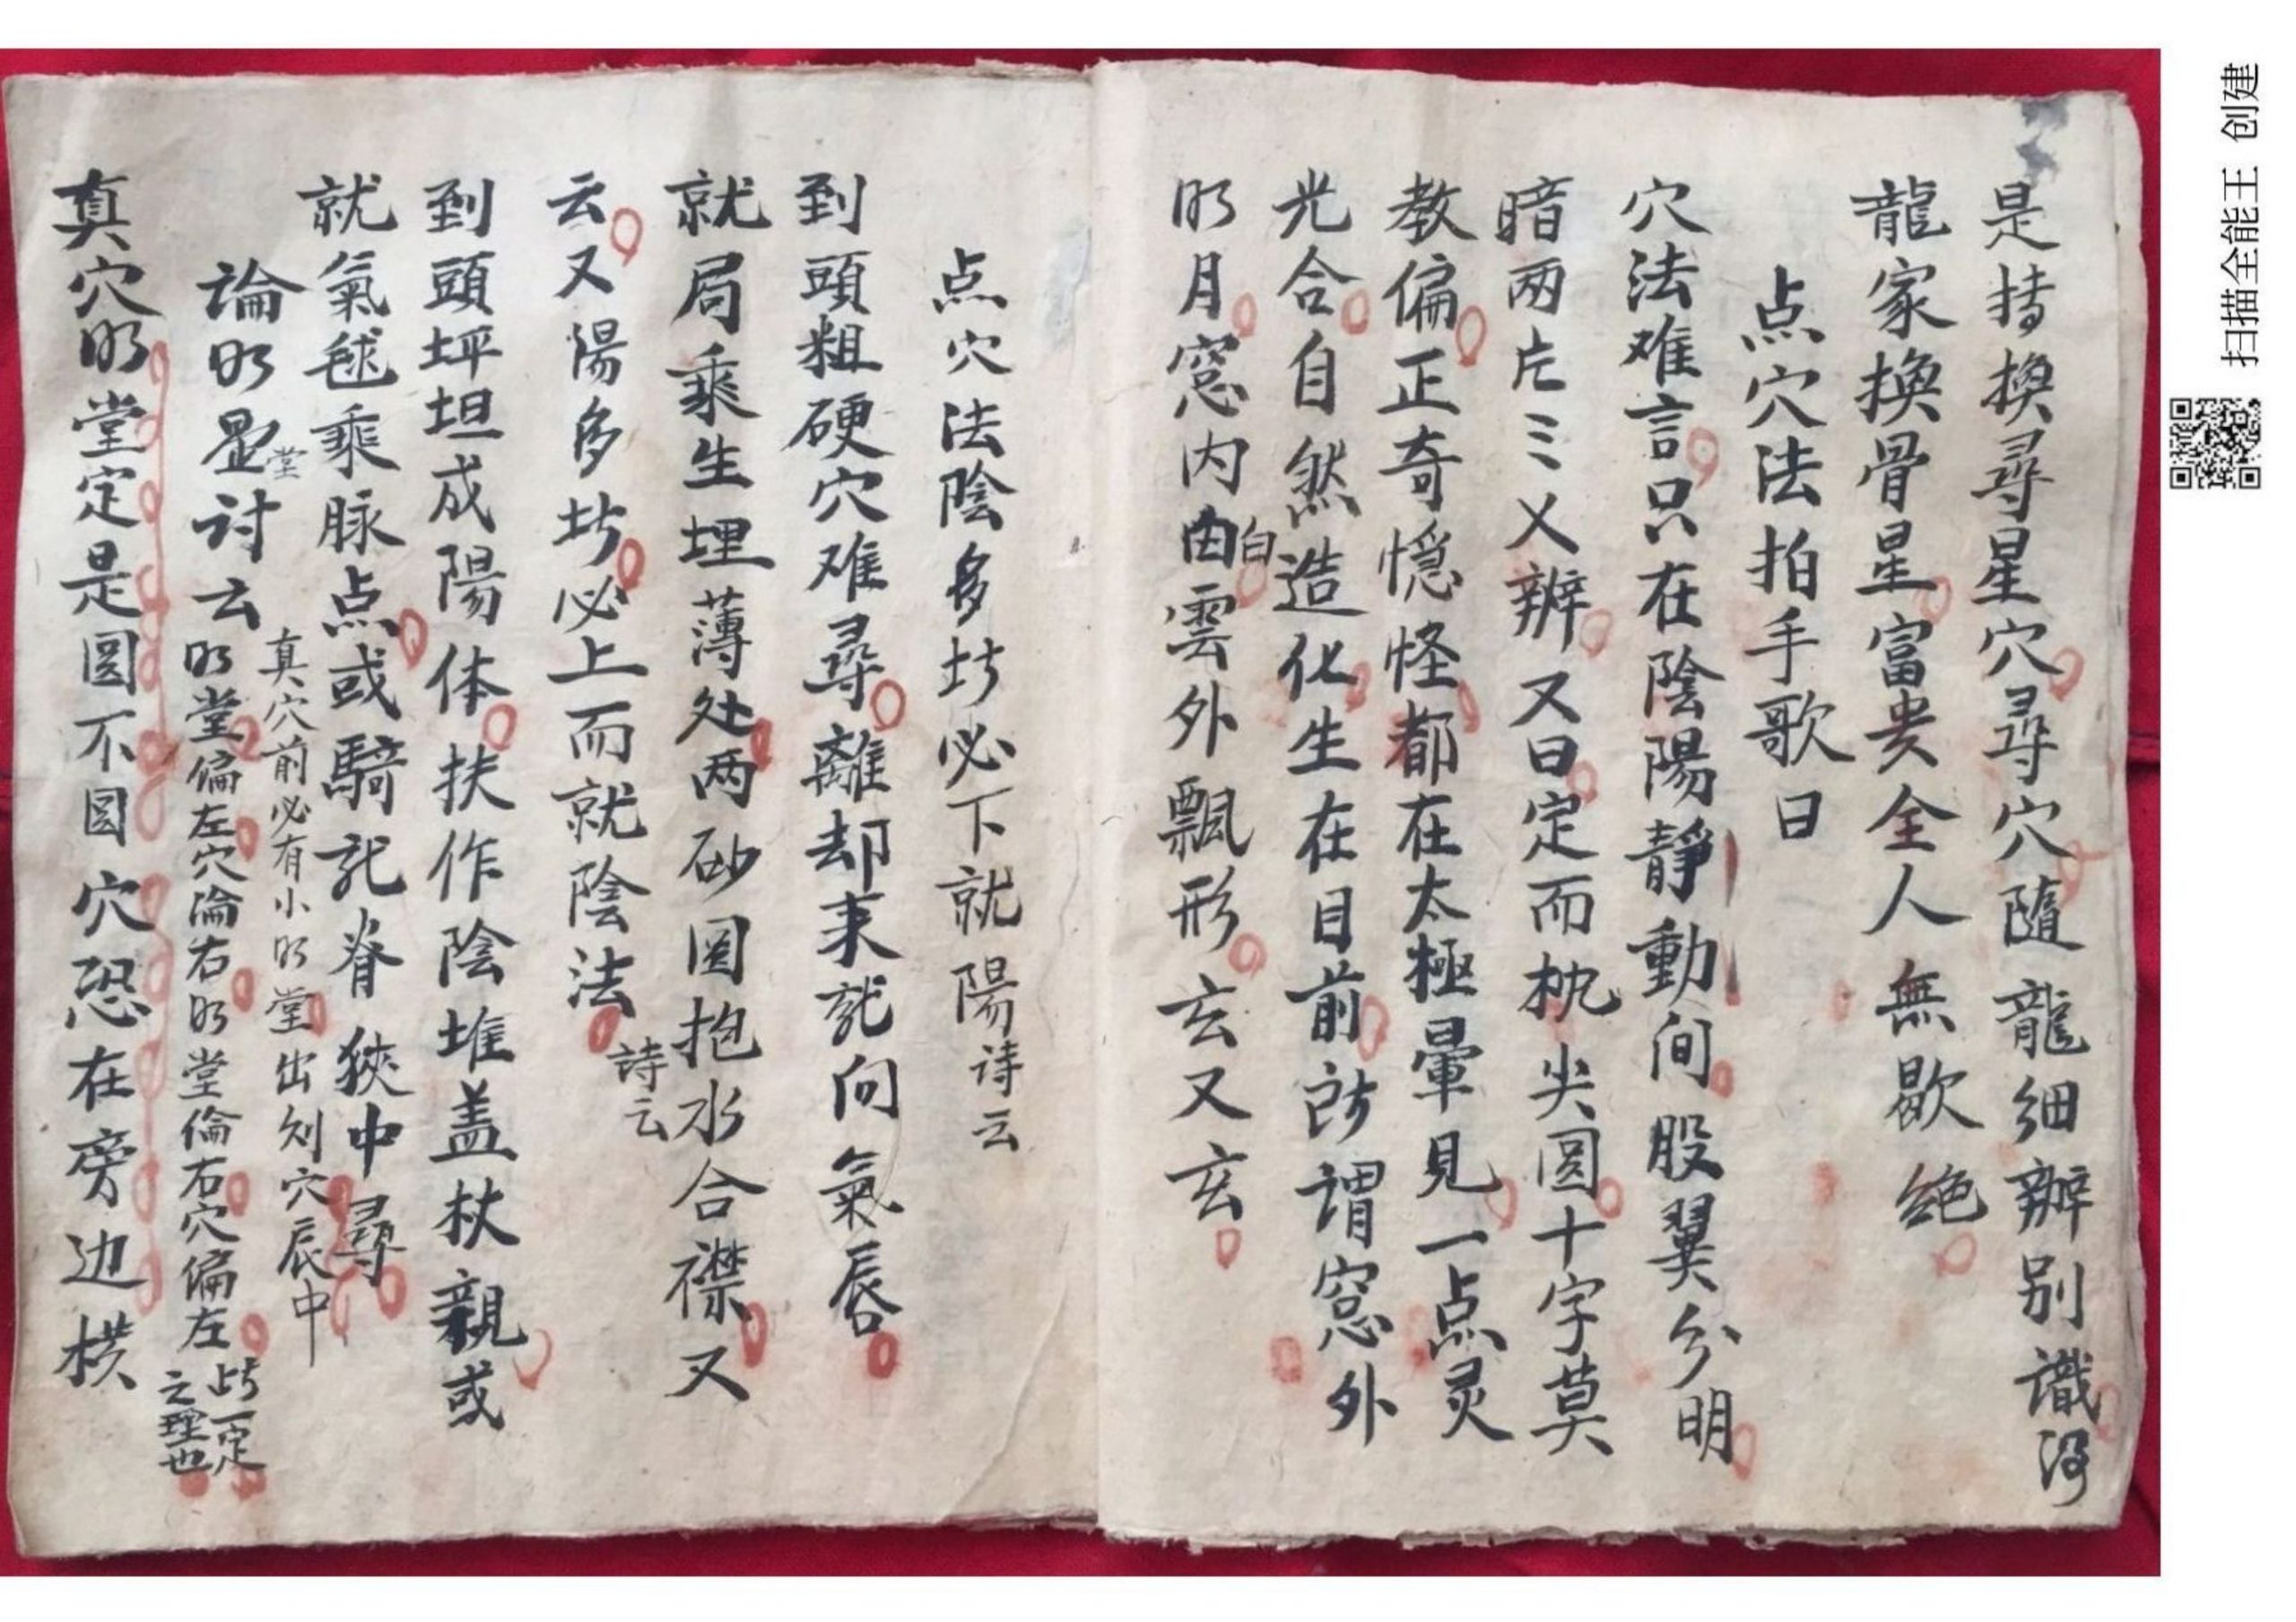 是持換尋星穴尋穴隨龍細辦别識得
龍家換骨星富貴全人無歇絕
点穴法拍手歌曰
穴法难言只在陰陽靜動间股翼分明
暗两片三乂辦又曰定而枕尖圆十字莫
教偏正奇憶怪都在太極暈見一点灵
光合自然造化生在目前所謂窓外
明月窓内白雲外飄形玄又玄
点穴法陰多坊必下就陽诗云
到頭粗硬穴难尋離却来就向氣唇
就局乘生埋薄处两砂圆抱水合襟又
云又陽多坊必上而就陰法詩云
到頭坪坦成陽体扶作陰堆盖杖親或
就氣毬乘脉点或騎龍脊狹中尋
論明堂是討云
真穴前必有小明堂出到穴辰中
明堂偏左穴淪右明堂倫右穴偏左
此一定
之理也
真穴明堂定是圆不圆穴恐在旁边横
扫描全能王 创建